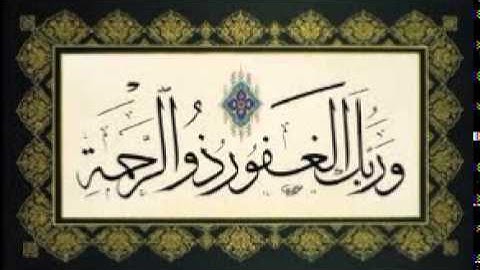 وربك الغفور ذو الرَّحْمَةِ